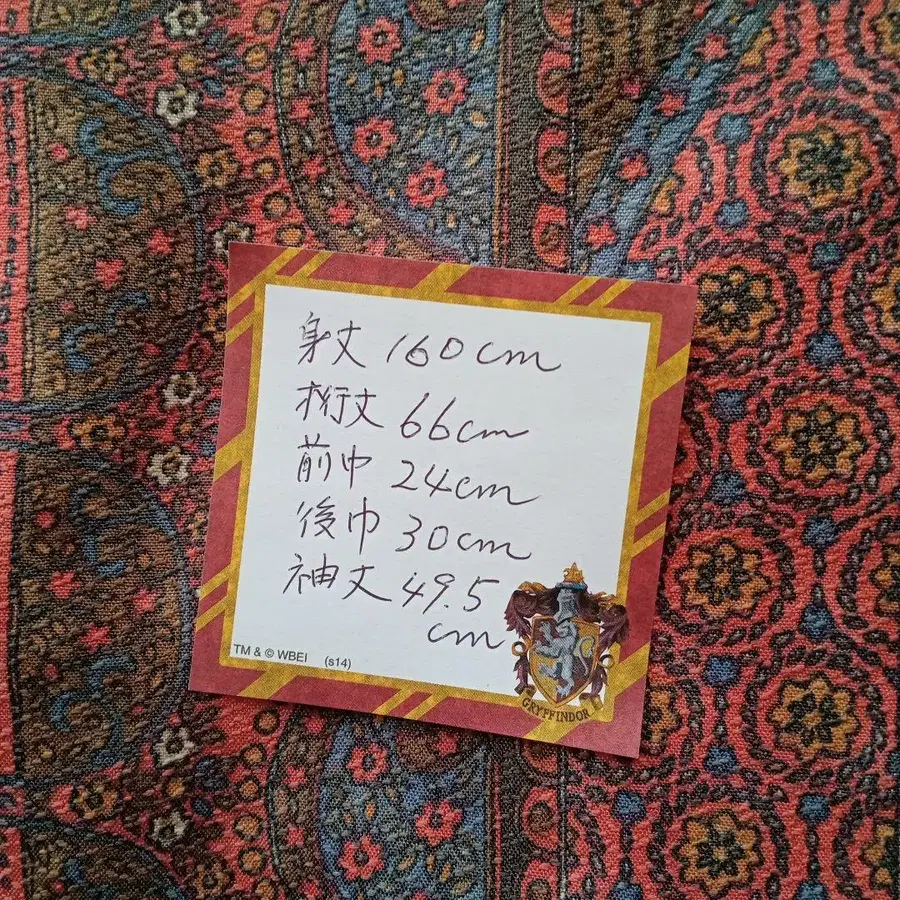 身丈 160cm
裄丈 66cm
前巾 24cm
後巾 30cm
袖丈 49.5
cm
TM & © WBEI (s14)
GRYFFINDOR